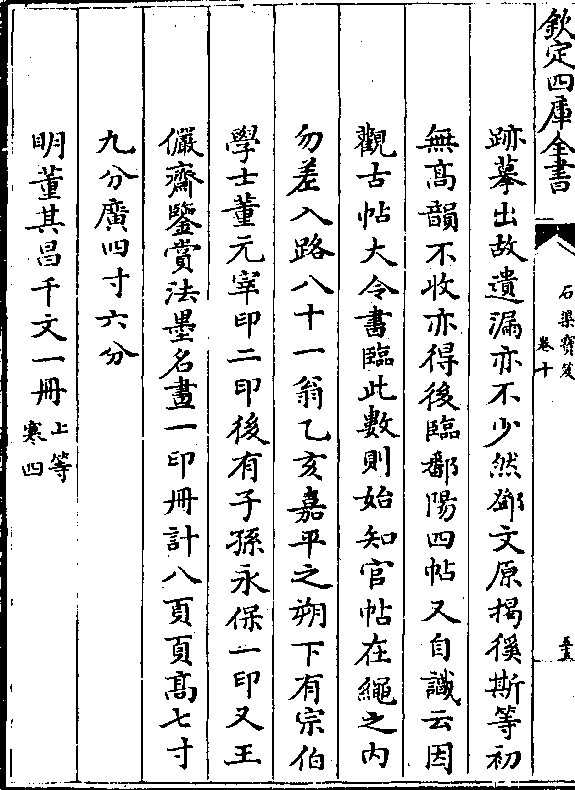 欽定四庫全書
石渠寶笈
卷十
五十五
跡摹出故遺漏亦不少然鄧文原揭徯斯等初
無髙韻不收亦得後臨鄱陽四帖又自識云因
觀古帖大令書臨此數則始知官帖在繩之内
勿差入路八十一翁乙亥嘉平之朔下有宗伯
學士董元宰印二印後有子孫永保一印又王
儼齋鑒賞法墨名畫一印冊計八頁頁髙七寸
九分廣四寸六分
明董其昌千文一冊上等
寒四